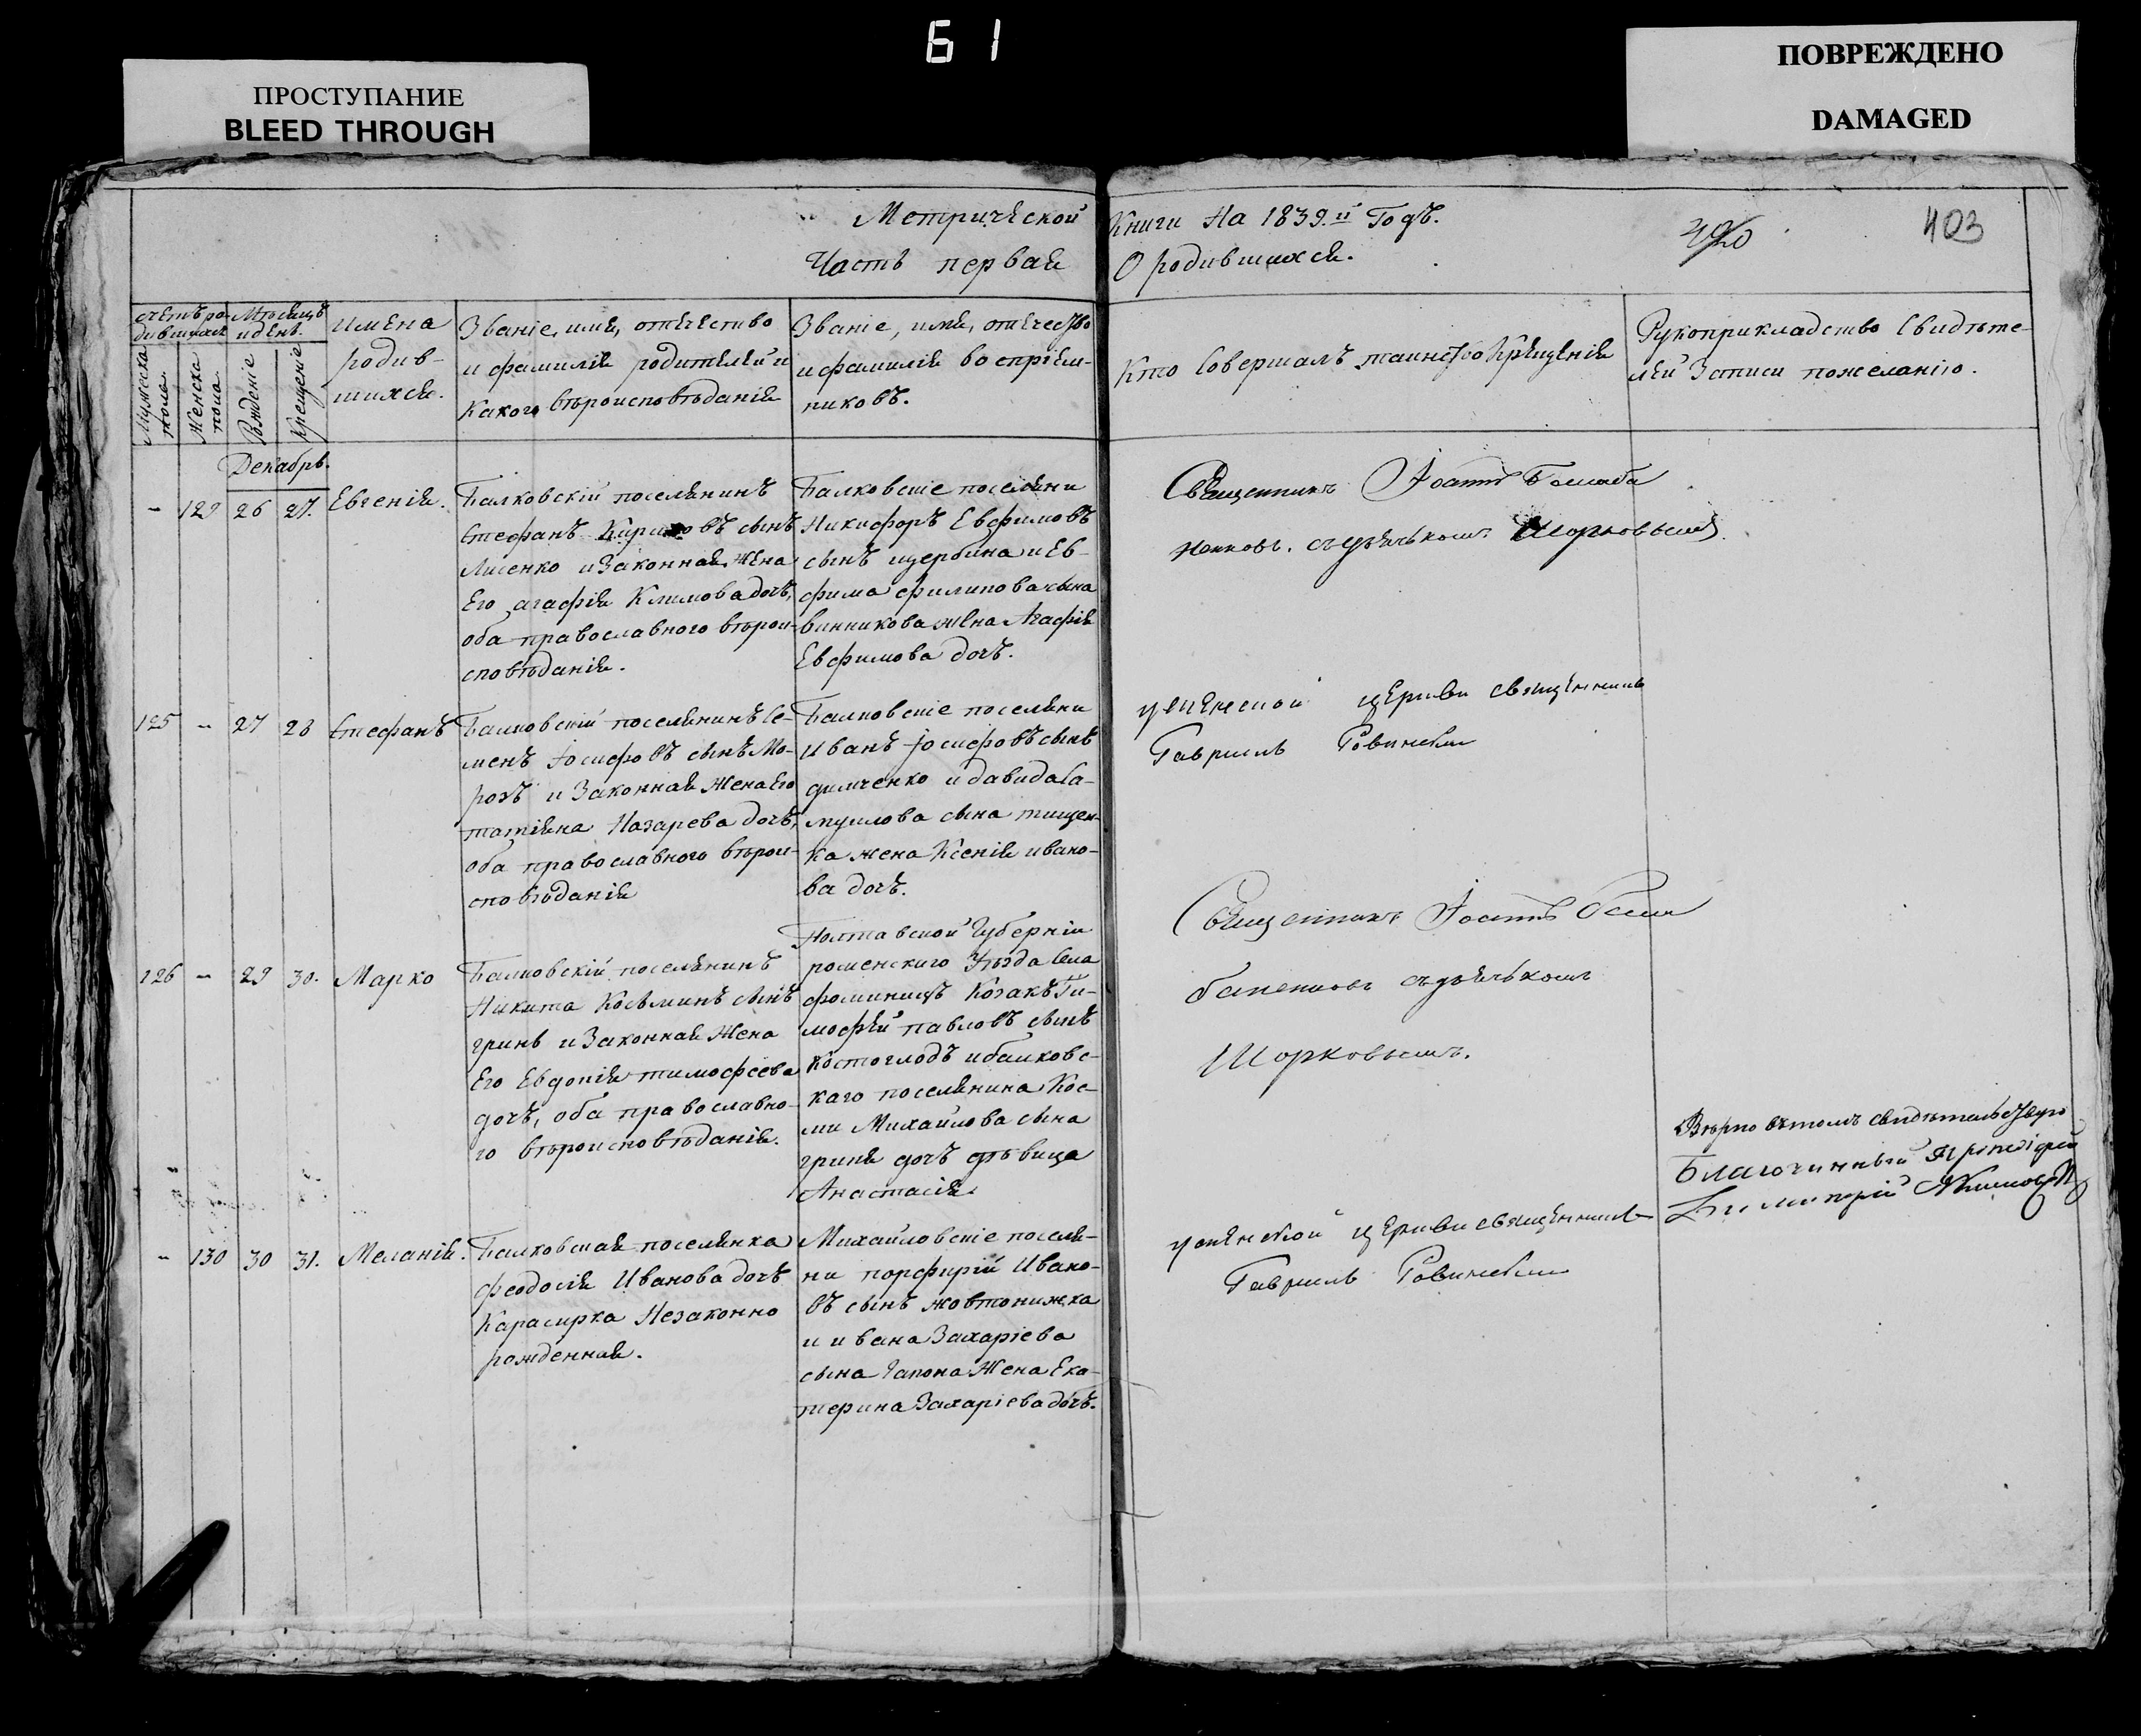 Б 1
ПРОСТУПАНИЕ
BLEED THROUGH
ПОВРЕЖДЕНО
DAMAGED
Метрической Книги На 1839.й Годъ.
Часть первая О родившихся.
390
403
счетъ родившихся
Мужеска пола
Женска пола
Мѣсяцъ и день
Рожденіе
Крещеніе
Имена
родив-
шихся.
Званіе, имя, отчество
и фамилія родителей и
какого вѣроисповѣданія
Званіе, имя, отчество
и фамилія воспріем-
никовъ.
Кто Совершалъ таинство Крещенія
Рукоприкладство Свидѣте-
лей Записи по желанію.
Декабрь.
- 129 26 27. Евгенія.
Балковскій поселянинъ
Стефанъ сынъ
Лисенко и Законная Жена
Его агафія Климова дочь,
оба православного вѣрои-
сповѣданія.
Балковскіе поселяни
Никифоръ Евфимовъ
сынъ щербина и Ев-
фима филипова сына
винникова жена Агафія
Евфимова дочь.
Священникъ Іоаннъ
125 - 27 28 Стефанъ
Балковскій поселянинъ Се-
менъ Іосифовъ сынъ Мо-
розъ и Законная Жена Его
татіяна Назарева дочь,
оба православного вѣрои-
сповѣданія
Балковскіе поселяни
Иванъ Іосифовъ сынъ
и давида Са-
муилова сына тищен-
ка жена Ксенія ивано-
ва дочь.
церкви священникъ
Гавриилъ Ровинскій
126 - 29 30. Марко
Балковскій поселянинъ
Никита Косьминъ сынъ
гринь и Законная Жена
Его Евдокія тимофеева
дочь, оба православно-
го вѣроисповѣданія.
Полтавской Губерніи
роменскаго Уѣзда Села
Козакъ Ти-
мофей павловъ сынъ
Костоглодъ и балковс-
каго поселянина Кос-
ми Михайлова сына
гриня дочь дѣвица
Анастасія.
Священникъ Іоаннъ
- 130 30 31. Меланія.
Балковская поселянка
феодосія Иванова дочь
Незаконно
рожденная.
Михайловскіе поселя-
ни порфирій Ивано-
въ сынъ жовтонижка
и ивана Захаріева
сына Гапона Жена Ека-
терина Захаріева дочь.
церкви священникъ
Гавриилъ Ровинскій
Вѣрно въ томъ свидѣтельствую
Благочинный
Димитрій